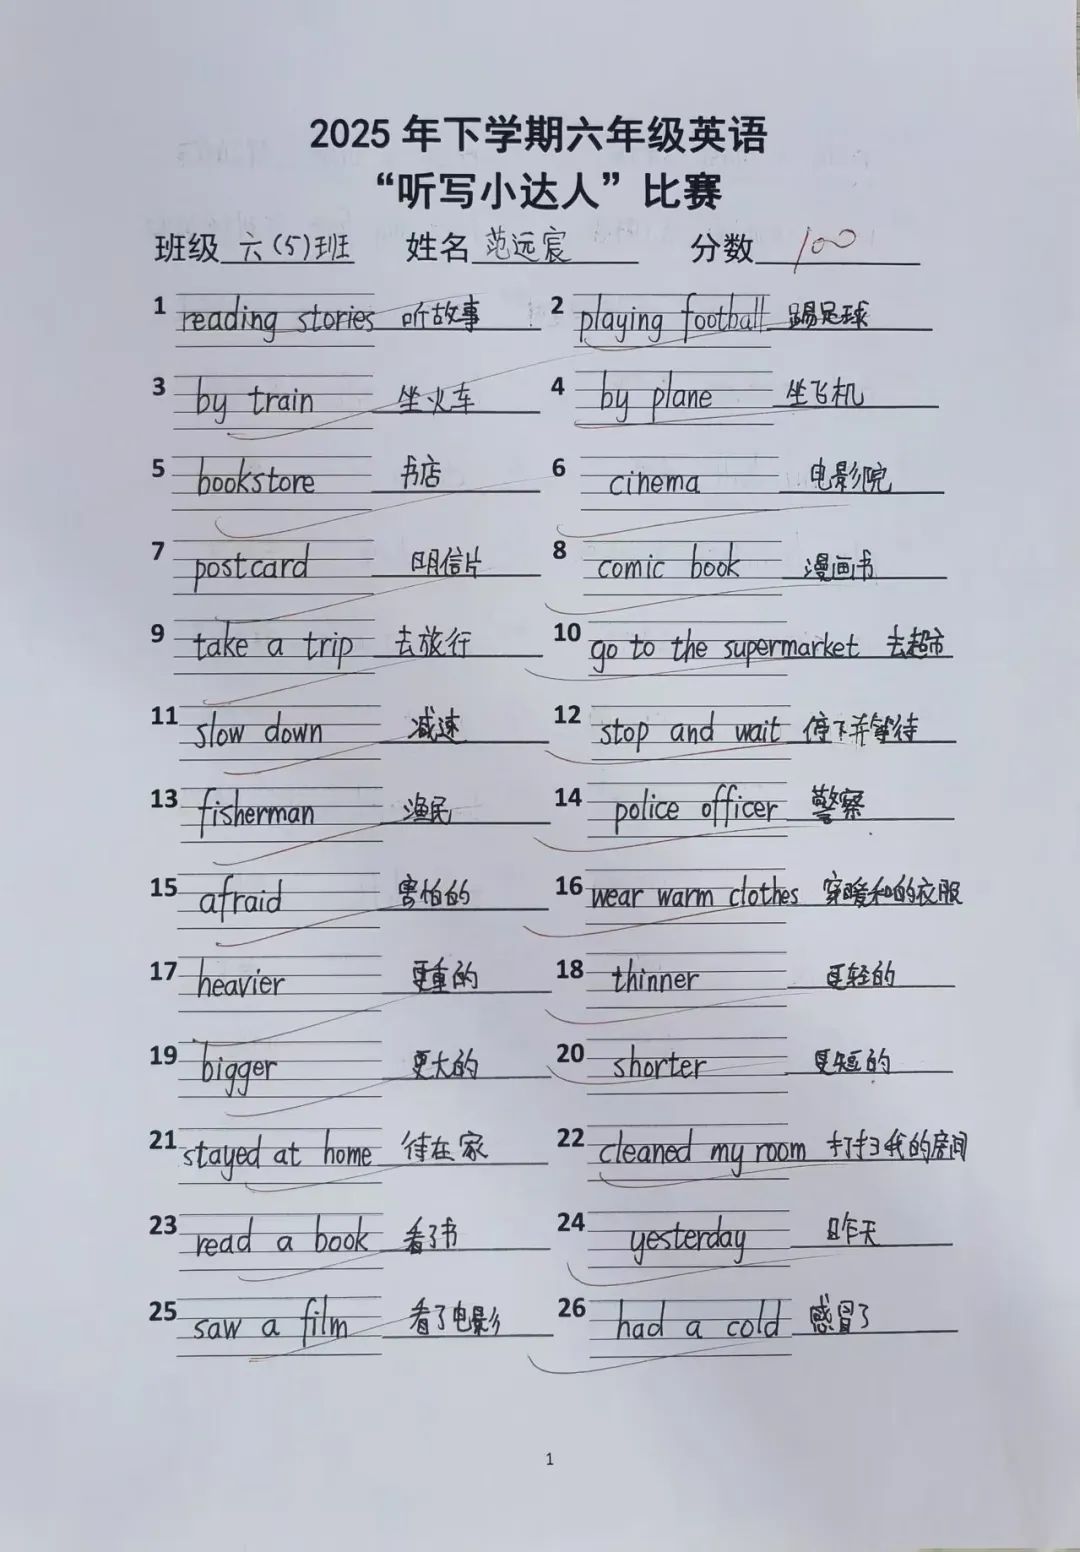 2025 年下学期六年级英语
“听写小达人”比赛
班级 六(5)班 姓名 范远宸 分数 100
1 reading stories 听故事 2 playing football 踢足球
3 by train 坐火车 4 by plane 坐飞机
5 bookstore 书店 6 cinema 电影院
7 postcard 明信片 8 comic book 漫画书
9 take a trip 去旅行 10 go to the supermarket 去超市
11 slow down 减速 12 stop and wait 停下并等待
13 fisherman 渔民 14 police officer 警察
15 afraid 害怕的 16 wear warm clothes 穿暖和的衣服
17 heavier 更重的 18 thinner 更轻的
19 bigger 更大的 20 shorter 更短的
21 stayed at home 待在家 22 cleaned my room 打扫我的房间
23 read a book 看了书 24 yesterday 昨天
25 saw a film 看了电影 26 had a cold 感冒了
1